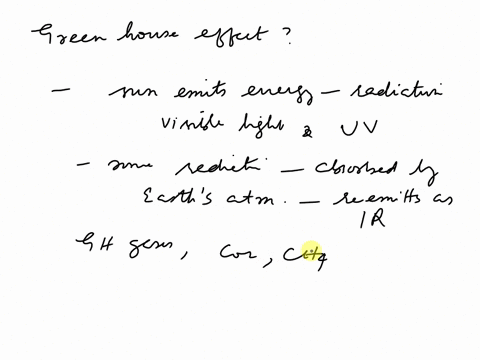 Green house effect ?
- sun emits energy - radiation
visible light & UV
- some radiati - absorbed by
Earth's atm. - re emitts as
IR
GH gases, CO2, CH4